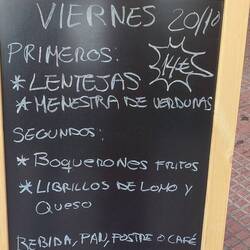 VIERNES 20/10
PRIMEROS: 14€
* LENTEJAS
* MENESTRA DE VERDURAS
SEGUNDOS:
* BOQUERONES FRITOS
* LIBRILLOS DE LOMO Y
QUESO
BEBIDA, PAN, POSTRE O CAFÉ